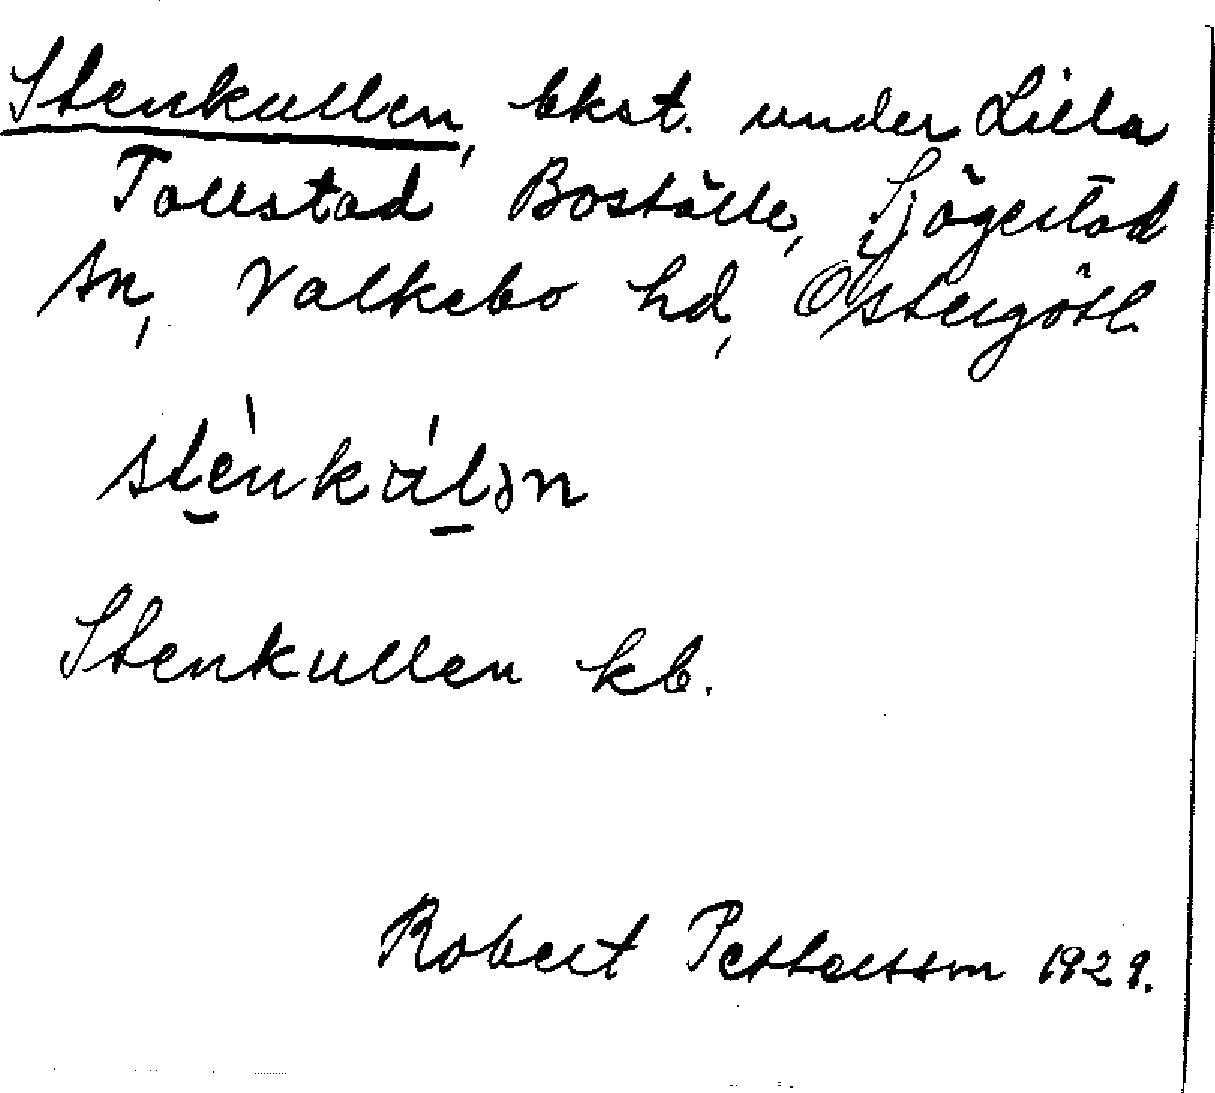 Stenkullen, bkst. under Lilla
Tollstad Boställe, Sjögestad
sn, Valkebo hd, Östergötl.
Stenkullen kb.
Robert Pettersson 1929.